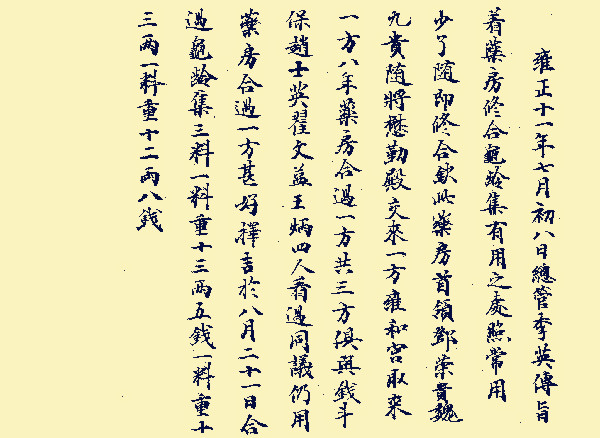 雍正十一年七月初八日總管李英傳旨
着藥房修合龜齡集有用之處照常用
少了随即修合欽此藥房首領鄧榮貴魏
九貴随將懋勤殿交來一方雍和宮取來
一方八年藥房合過一方共三方俱與錢斗
保趙士英翟文益王炳四人看過同議仍用
藥房合過一方甚好擇吉於八月二十一日合
過龜齡集三料一料重十三両五錢一料重十
三両一料重十二両八錢